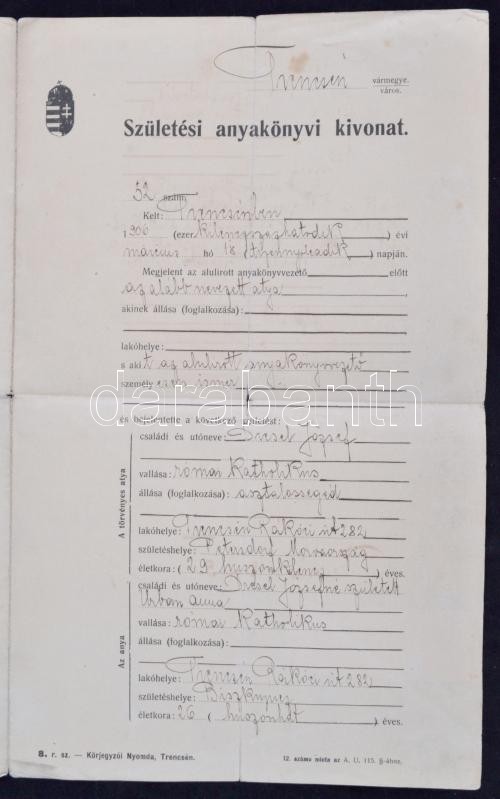 Trencsén vármegye.
város.
Születési anyakönyvi kivonat.
52 szám
Kelt: Trencsénben
1906 (ezer kilencszázhatodik) évi
március hó 18 (tizennyolcadik) napján.
Megjelent az alulirott anyakönyvvezető előtt
az alább nevezett atya,
akinek állása (foglalkozása):
lakóhelye:
s akit az alulirott anyakönyvvezető
személy ismer
és bejelentette a következő születést:
A törvényes atya
családi és utóneve: Dresel József
vallása: római katholikus
állása (foglalkozása): asztalossegéd
lakóhelye: Trencsén Rákóci út 282
születéshelye: Petersdorf Morvaország
életkora: (29 huszonkilenc) éves.
Az anya
családi és utóneve: Dresel Józsefné született
Urban Anna
vallása: római katholikus
állása (foglalkozása):
lakóhelye: Trencsén Rákóci út 282
születéshelye:
életkora: 26 (huszonhat) éves.
8. r. sz. — Körjegyzői Nyomda, Trencsén.
12. számu minta az A. U. 115. §-ához.
darabanth